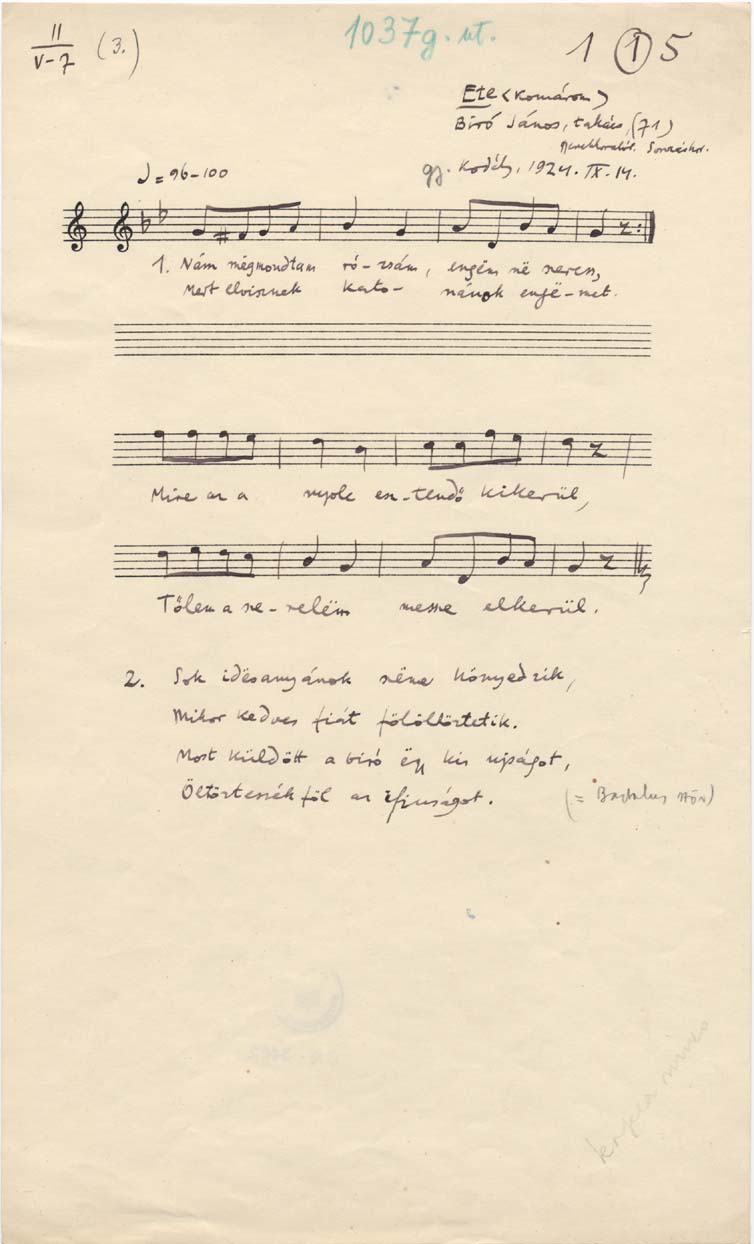 II
V-7
(3.)
1037g. ut.
1 1 5
Ete (Komárom)
Bíró János, takács, (71)
gy. Kodály, 1924. IX. 14.
♩ = 96-100
1. Nám mëgmondtam ró-zsám, engëm në szeress,
Mert elvisznek kato- nánok engë-met.
Mire az a nyolc esz-tendő kikerül,
Tőlem a sze-relëm messze elkerül.
2. Sok idësanyánok szëme könyedzik,
Mikor kedves fiát fölöltöztetik.
Most küldött a bíró ëgy kis ujságot,
Öltöztessék föl az ifjuságot.